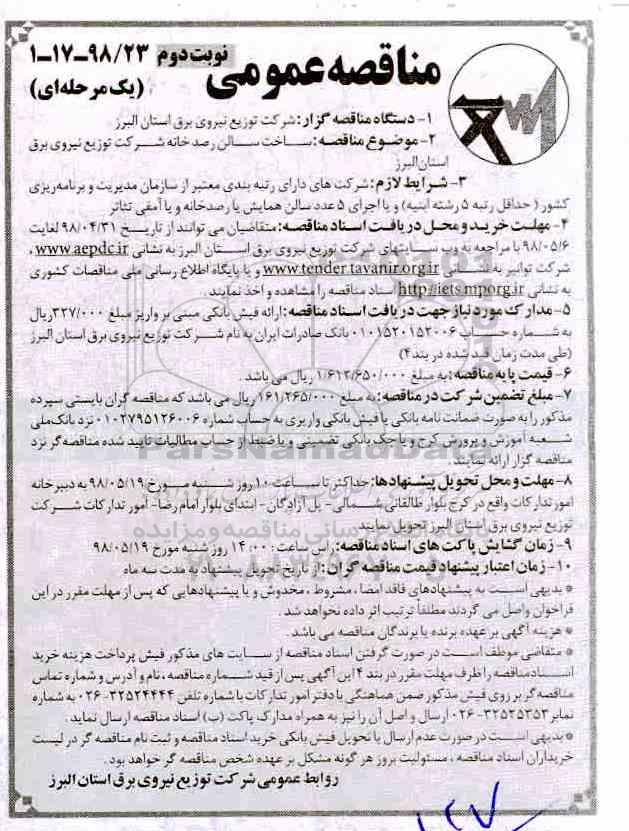 مناقصه عمومی
نوبت دوم ۹۸/۲۳-۱۷-۱
(یک مرحله‌ای)
۱- دستگاه مناقصه گزار: شرکت توزیع نیروی برق استان البرز.
۲- موضوع مناقصه: ساخت سالن رصدخانه شرکت توزیع نیروی برق
استان البرز
۳- شرایط لازم: شرکت های دارای رتبه بندی معتبر از سازمان مدیریت و برنامه‌ریزی
کشور (حداقل رتبه ۵ رشته ابنیه) و یا اجرای ۵ عدد سالن همایش یا رصدخانه و یا آمفی تئاتر
۴- مهلت خرید و محل دریافت اسناد مناقصه: متقاضیان می توانند از تاریخ ۹۸/۰۴/۳۱ لغایت
۹۸/۰۵/۶ با مراجعه به وب سایتهای شرکت توزیع نیروی برق استان البرز به نشانی www.aepdc.ir ،
شرکت توانیر به نشانی www.tender.tavanir.org.ir و یا پایگاه اطلاع رسانی ملی مناقصات کشوری
به نشانی http://iets.mporg.ir اسناد مناقصه را مشاهده و اخذ نمایند.
۵- مدارک مورد نیاز جهت دریافت اسناد مناقصه: ارائه فیش بانکی مبنی بر واریز مبلغ ۳۲۷/۰۰۰ ریال
به شماره حساب ۰۱۰۱۵۲۰۱۵۲۰۰۶ بانک صادرات ایران به نام شرکت توزیع نیروی برق استان البرز
(طی مدت زمان قید شده در بند ۴)
۶- قیمت پایه مناقصه: به مبلغ ۱/۶۱۲/۶۵۰/۰۰۰ ریال می باشد.
۷- مبلغ تضمین شرکت در مناقصه: به مبلغ ۱۶۱/۲۶۵/۰۰۰ ریال می باشد که مناقصه گران بایستی سپرده
مذکور را به صورت ضمانت نامه بانکی یا فیش بانکی واریزی به حساب شماره ۰۱۰۲۷۹۵۱۲۶۰۰۶ نزد بانک ملی
شعبه آموزش و پرورش کرج و یا چک بانکی تضمینی و یا ضبط از حساب مطالبات تایید شده مناقصه گر نزد
مناقصه گزار ارائه نمایند.
۸- مهلت و محل تحویل پیشنهادها: حداکثر تا ساعت ۱۰ روز شنبه مورخ ۹۸/۰۵/۱۹ به دبیرخانه
امور تدارکات واقع در کرج بلوار طالقانی شمالی- پل آزادگان- ابتدای بلوار امام رضا- امور تدارکات شرکت
توزیع نیروی برق استان البرز تحویل نمایند
۹- زمان گشایش پاکت های اسناد مناقصه: راس ساعت: ۱۴:۰۰ روز شنبه مورخ ۹۸/۰۵/۱۹
۱۰- زمان اعتبار پیشنهاد قیمت مناقصه گران: از تاریخ تحویل پیشنهاد به مدت سه ماه
* بدیهی است به پیشنهادهای فاقد امضا، مشروط، مخدوش و یا پیشنهادهایی که پس از مهلت مقرر در این
فراخوان واصل می گردند مطلقاً ترتیب اثر داده نخواهد شد.
* هزینه آگهی بر عهده برنده یا برندگان مناقصه می باشد.
* متقاضی موظف است در صورت گرفتن اسناد مناقصه از سایت های مذکور فیش پرداخت هزینه خرید
اسناد مناقصه را ظرف مهلت مقرر در بند ۴ این آگهی پس از قید شماره مناقصه، نام و آدرس و شماره تماس
مناقصه گر بر روی فیش مذکور ضمن هماهنگی با دفتر امور تدارکات با شماره تلفن ۳۲۵۲۴۴۴۴-۰۲۶ به شماره
نمابر ۳۲۵۲۵۳۵۳-۰۲۶ ارسال و اصل آن را نیز به همراه مدارک پاکت (ب) اسناد مناقصه ارسال نماید.
* بدیهی است در صورت عدم ارسال یا تحویل فیش بانکی خرید اسناد مناقصه و ثبت نام مناقصه گر در لیست
خریداران اسناد مناقصه، مسئولیت بروز هر گونه مشکل بر عهده شخص مناقصه گر خواهد بود.
روابط عمومی شرکت توزیع نیروی برق استان البرز
ParsNamadData